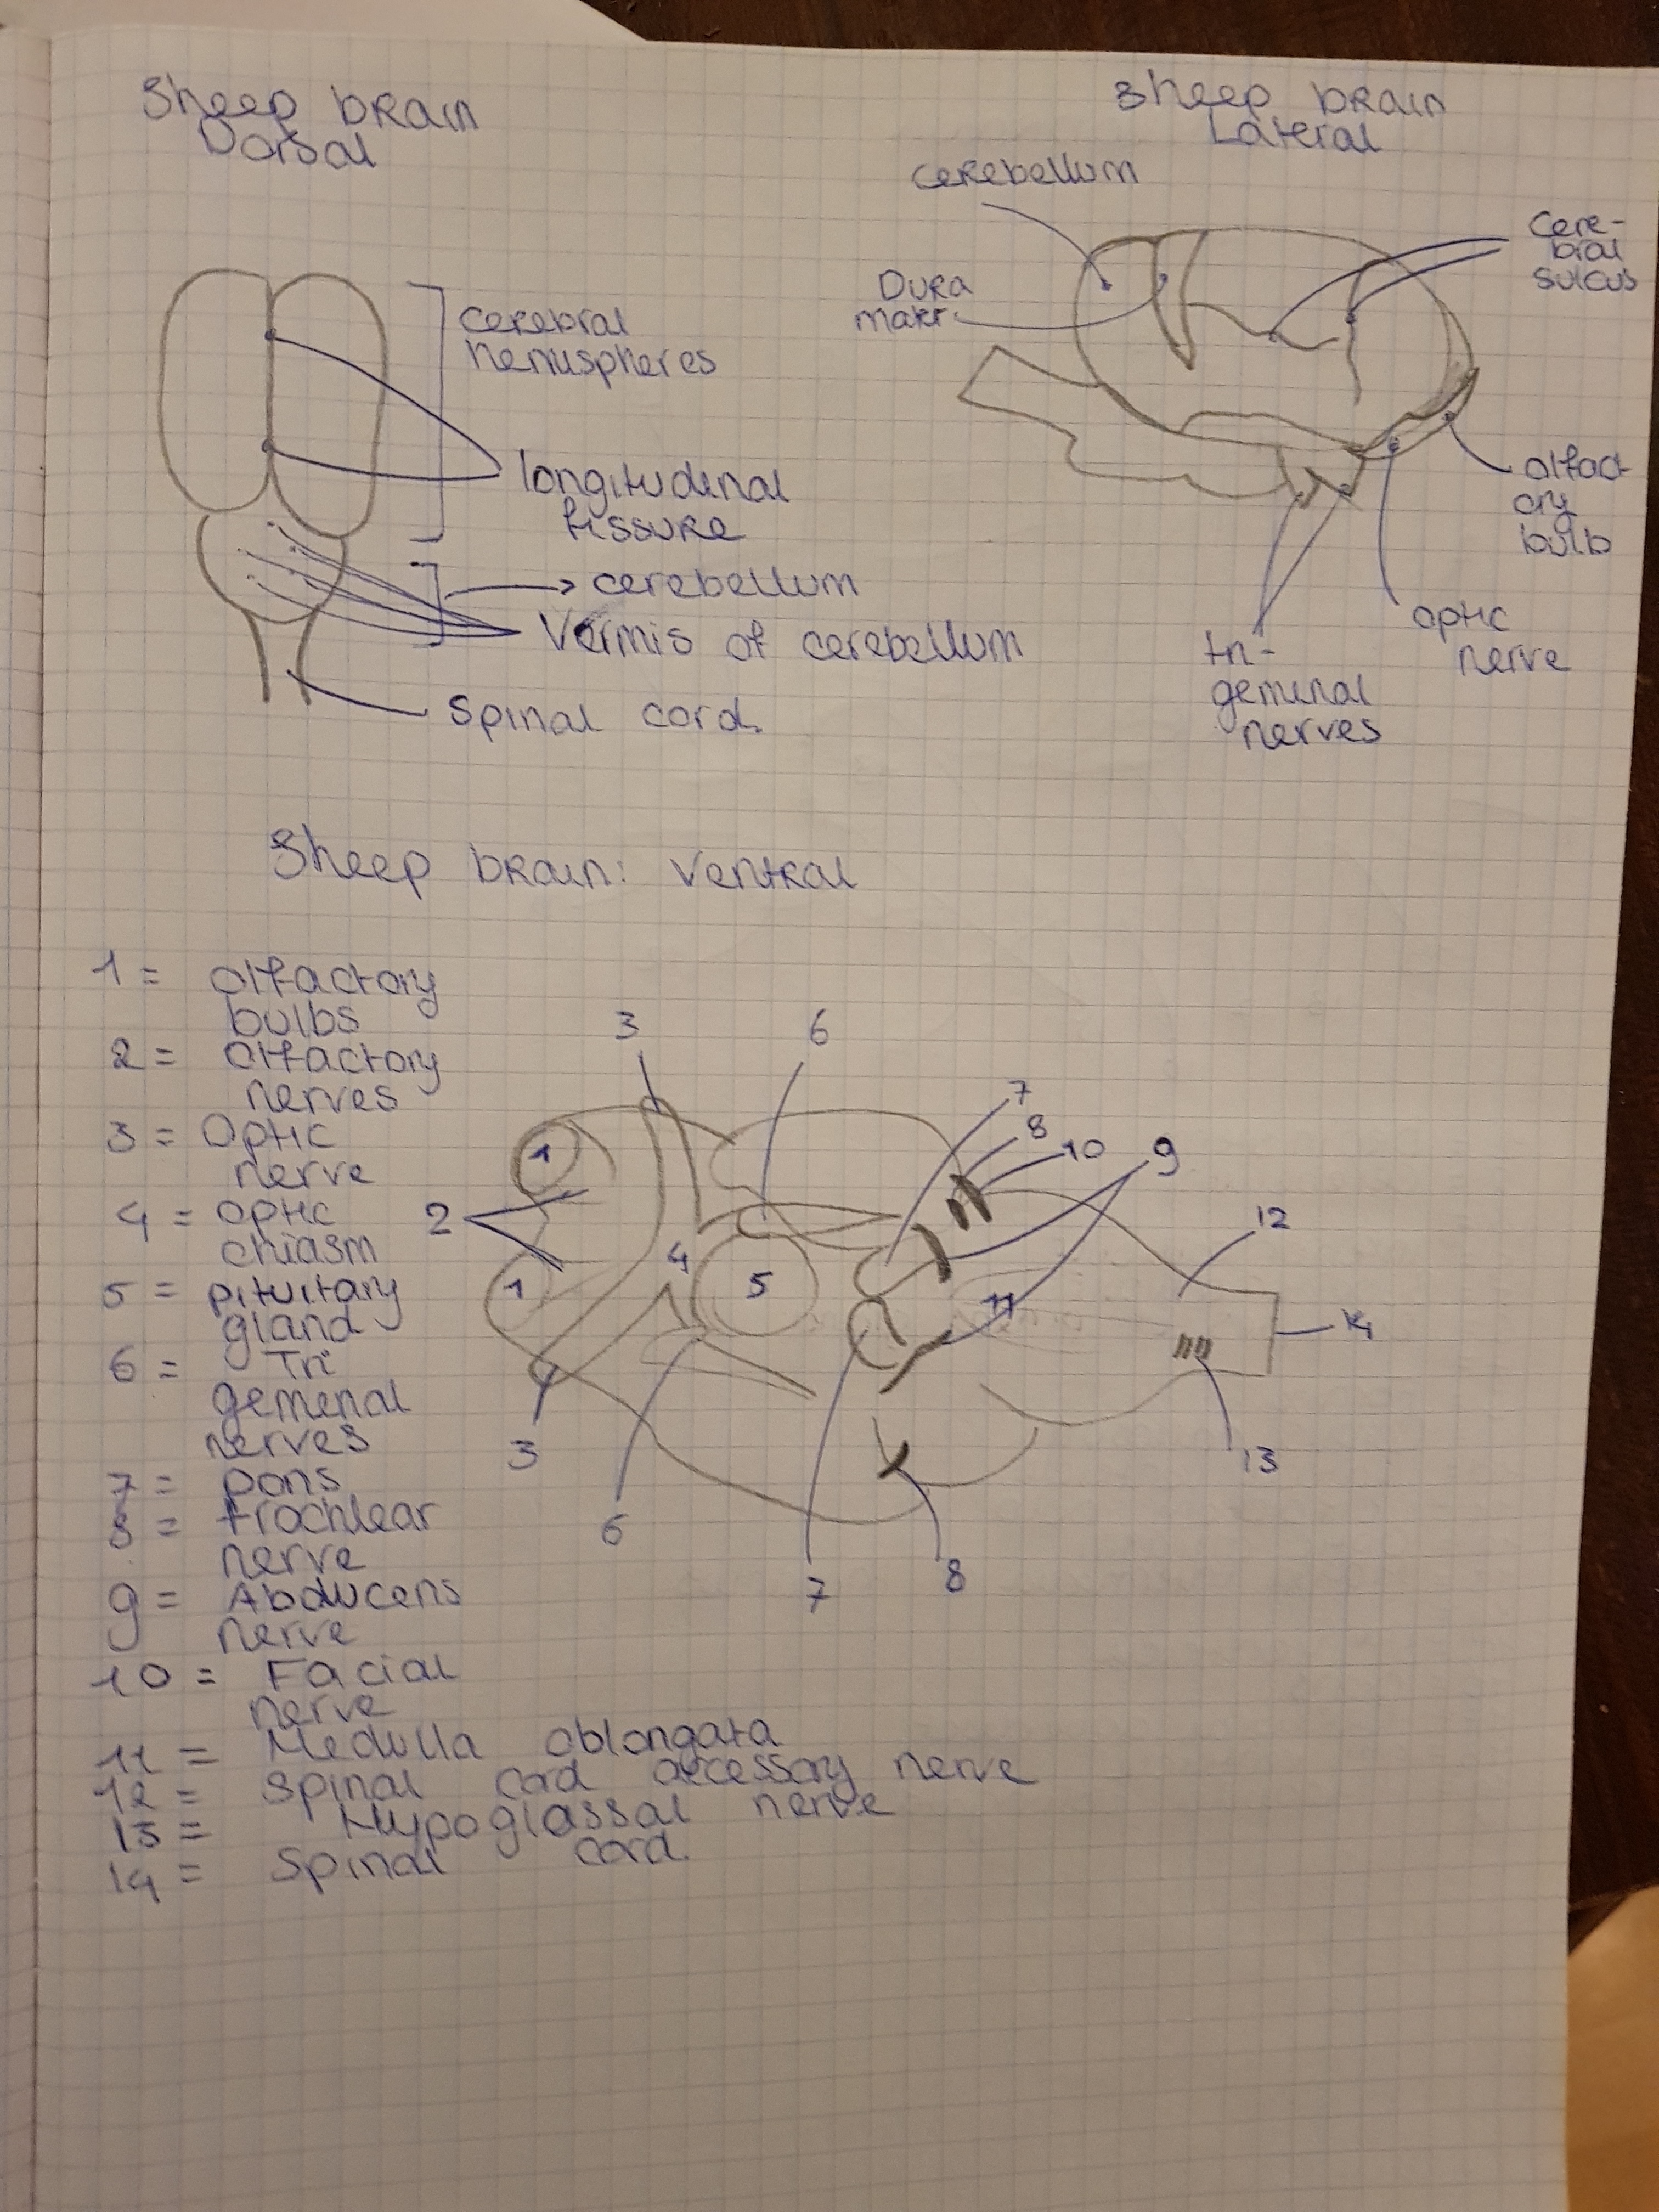 Sheep brain
Dorsal
cerebral
hemispheres
longitudinal
fissure
cerebellum
Vermis of cerebellum
spinal cord.
Sheep brain
Lateral
cerebellum
Dura
mater
cere-
bral
sulcus
olfact
ory
bulb
optic
nerve
tri-
geminal
nerves
Sheep brain: Ventral
1 = olfactory
bulbs
2 = olfactory
nerves
3 = Optic
nerve
4 = optic
chiasm
5 = pituitary
gland
6 = Tri
gemenal
nerves
7 = pons
8 = trochlear
nerve
9 = Abducens
nerve
10 = Facial
nerve
11 = Medulla oblongata
12 = spinal cord accessory nerve
13 = Hypoglassal nerve
14 = Spinal cord.
3
6
7
8
10
9
1
2
12
4
5
1
11
14
3
13
6
8
7